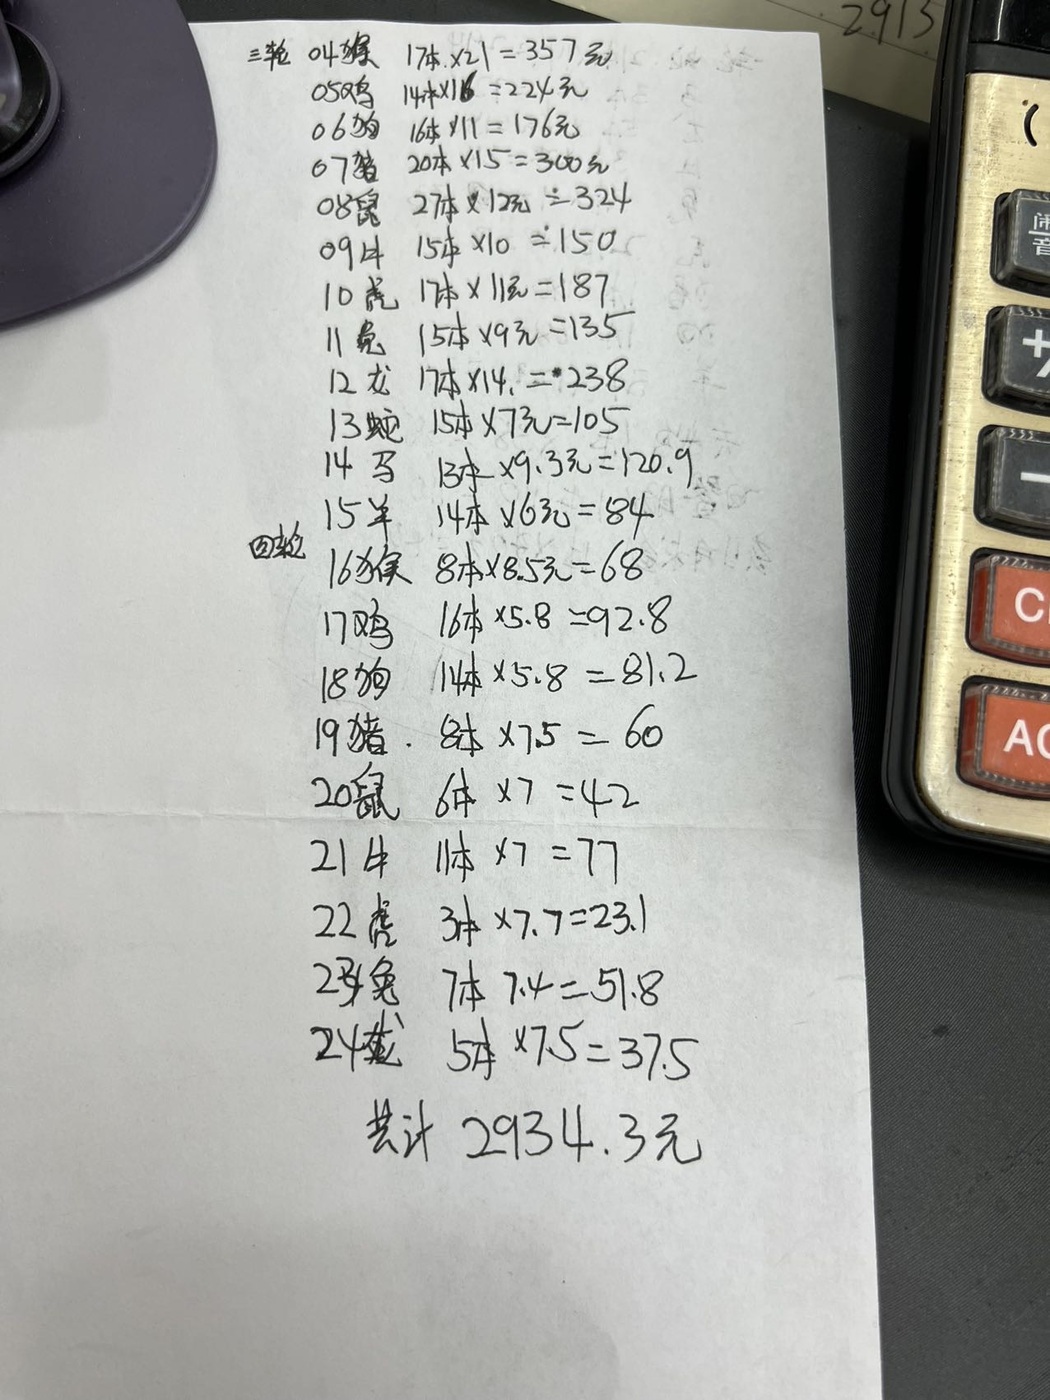 2915
三轮 04猴 17本×21=357元
05鸡 14本×16=224元
06狗 16本×11=176元
07猪 20本×15=300元
08鼠 27本×12元=324
09牛 15本×10=150
10虎 17本×11元=187
11兔 15本×9元=135
12龙 17本×14.=238
13蛇 15本×7元=105
14马 13本×9.3元=120.9
15羊 14本×6元=84
四轮 16猴 8本×8.5元=68
17鸡 16本×5.8=92.8
18狗 14本×5.8=81.2
19猪. 8本×7.5=60
20鼠 6本×7=42
21牛 11本×7=77
22虎 3本×7.7=23.1
23兔 7本 7.4=51.8
24龙 5本×7.5=37.5
共计 2934.3元
闹
音
+/
−
C
AC